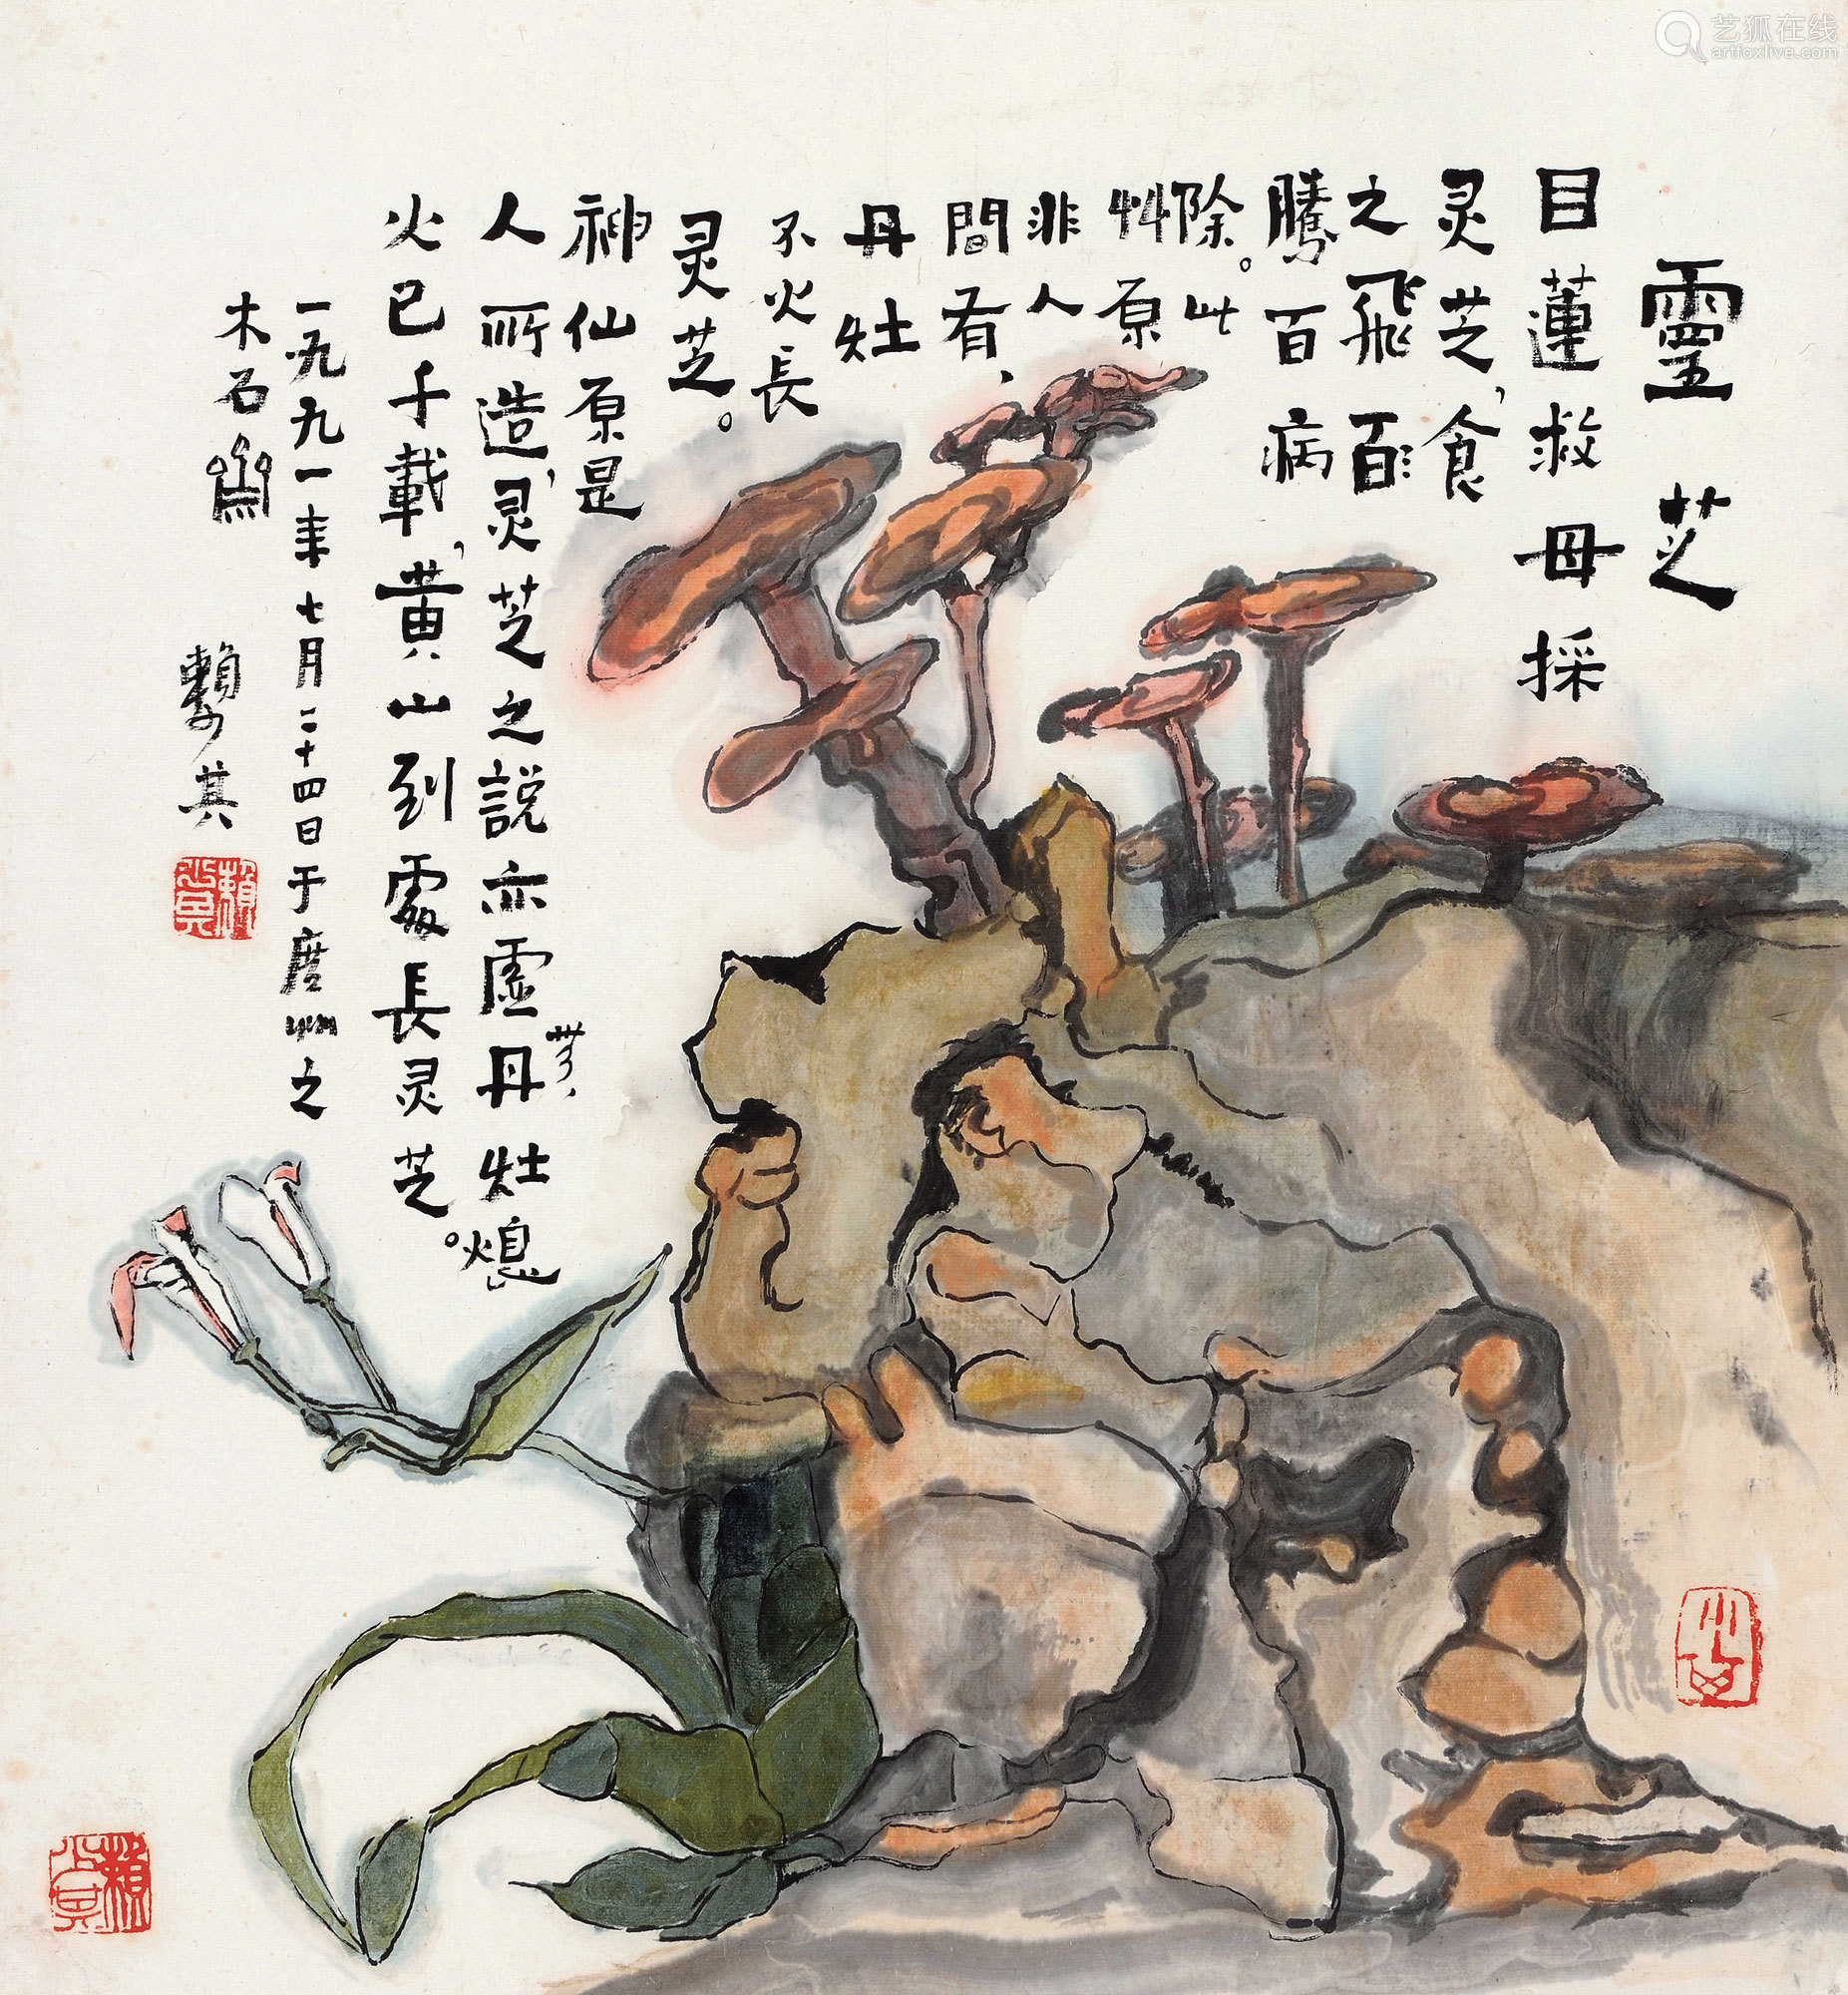 靈芝
目蓮救母採
灵芝，食
之飛
騰百病
除。此
艸原
非人
間有，
丹灶
不火長
灵芝。
神仙原是
人所造，灵芝之說亦虛無，丹灶熄
火已千載，黄山到處長灵芝。
一九九一年七月二十四日于廣州之
木石齋
賴少其
賴少其
賴少其
艺狐在线
artfoxlive.com